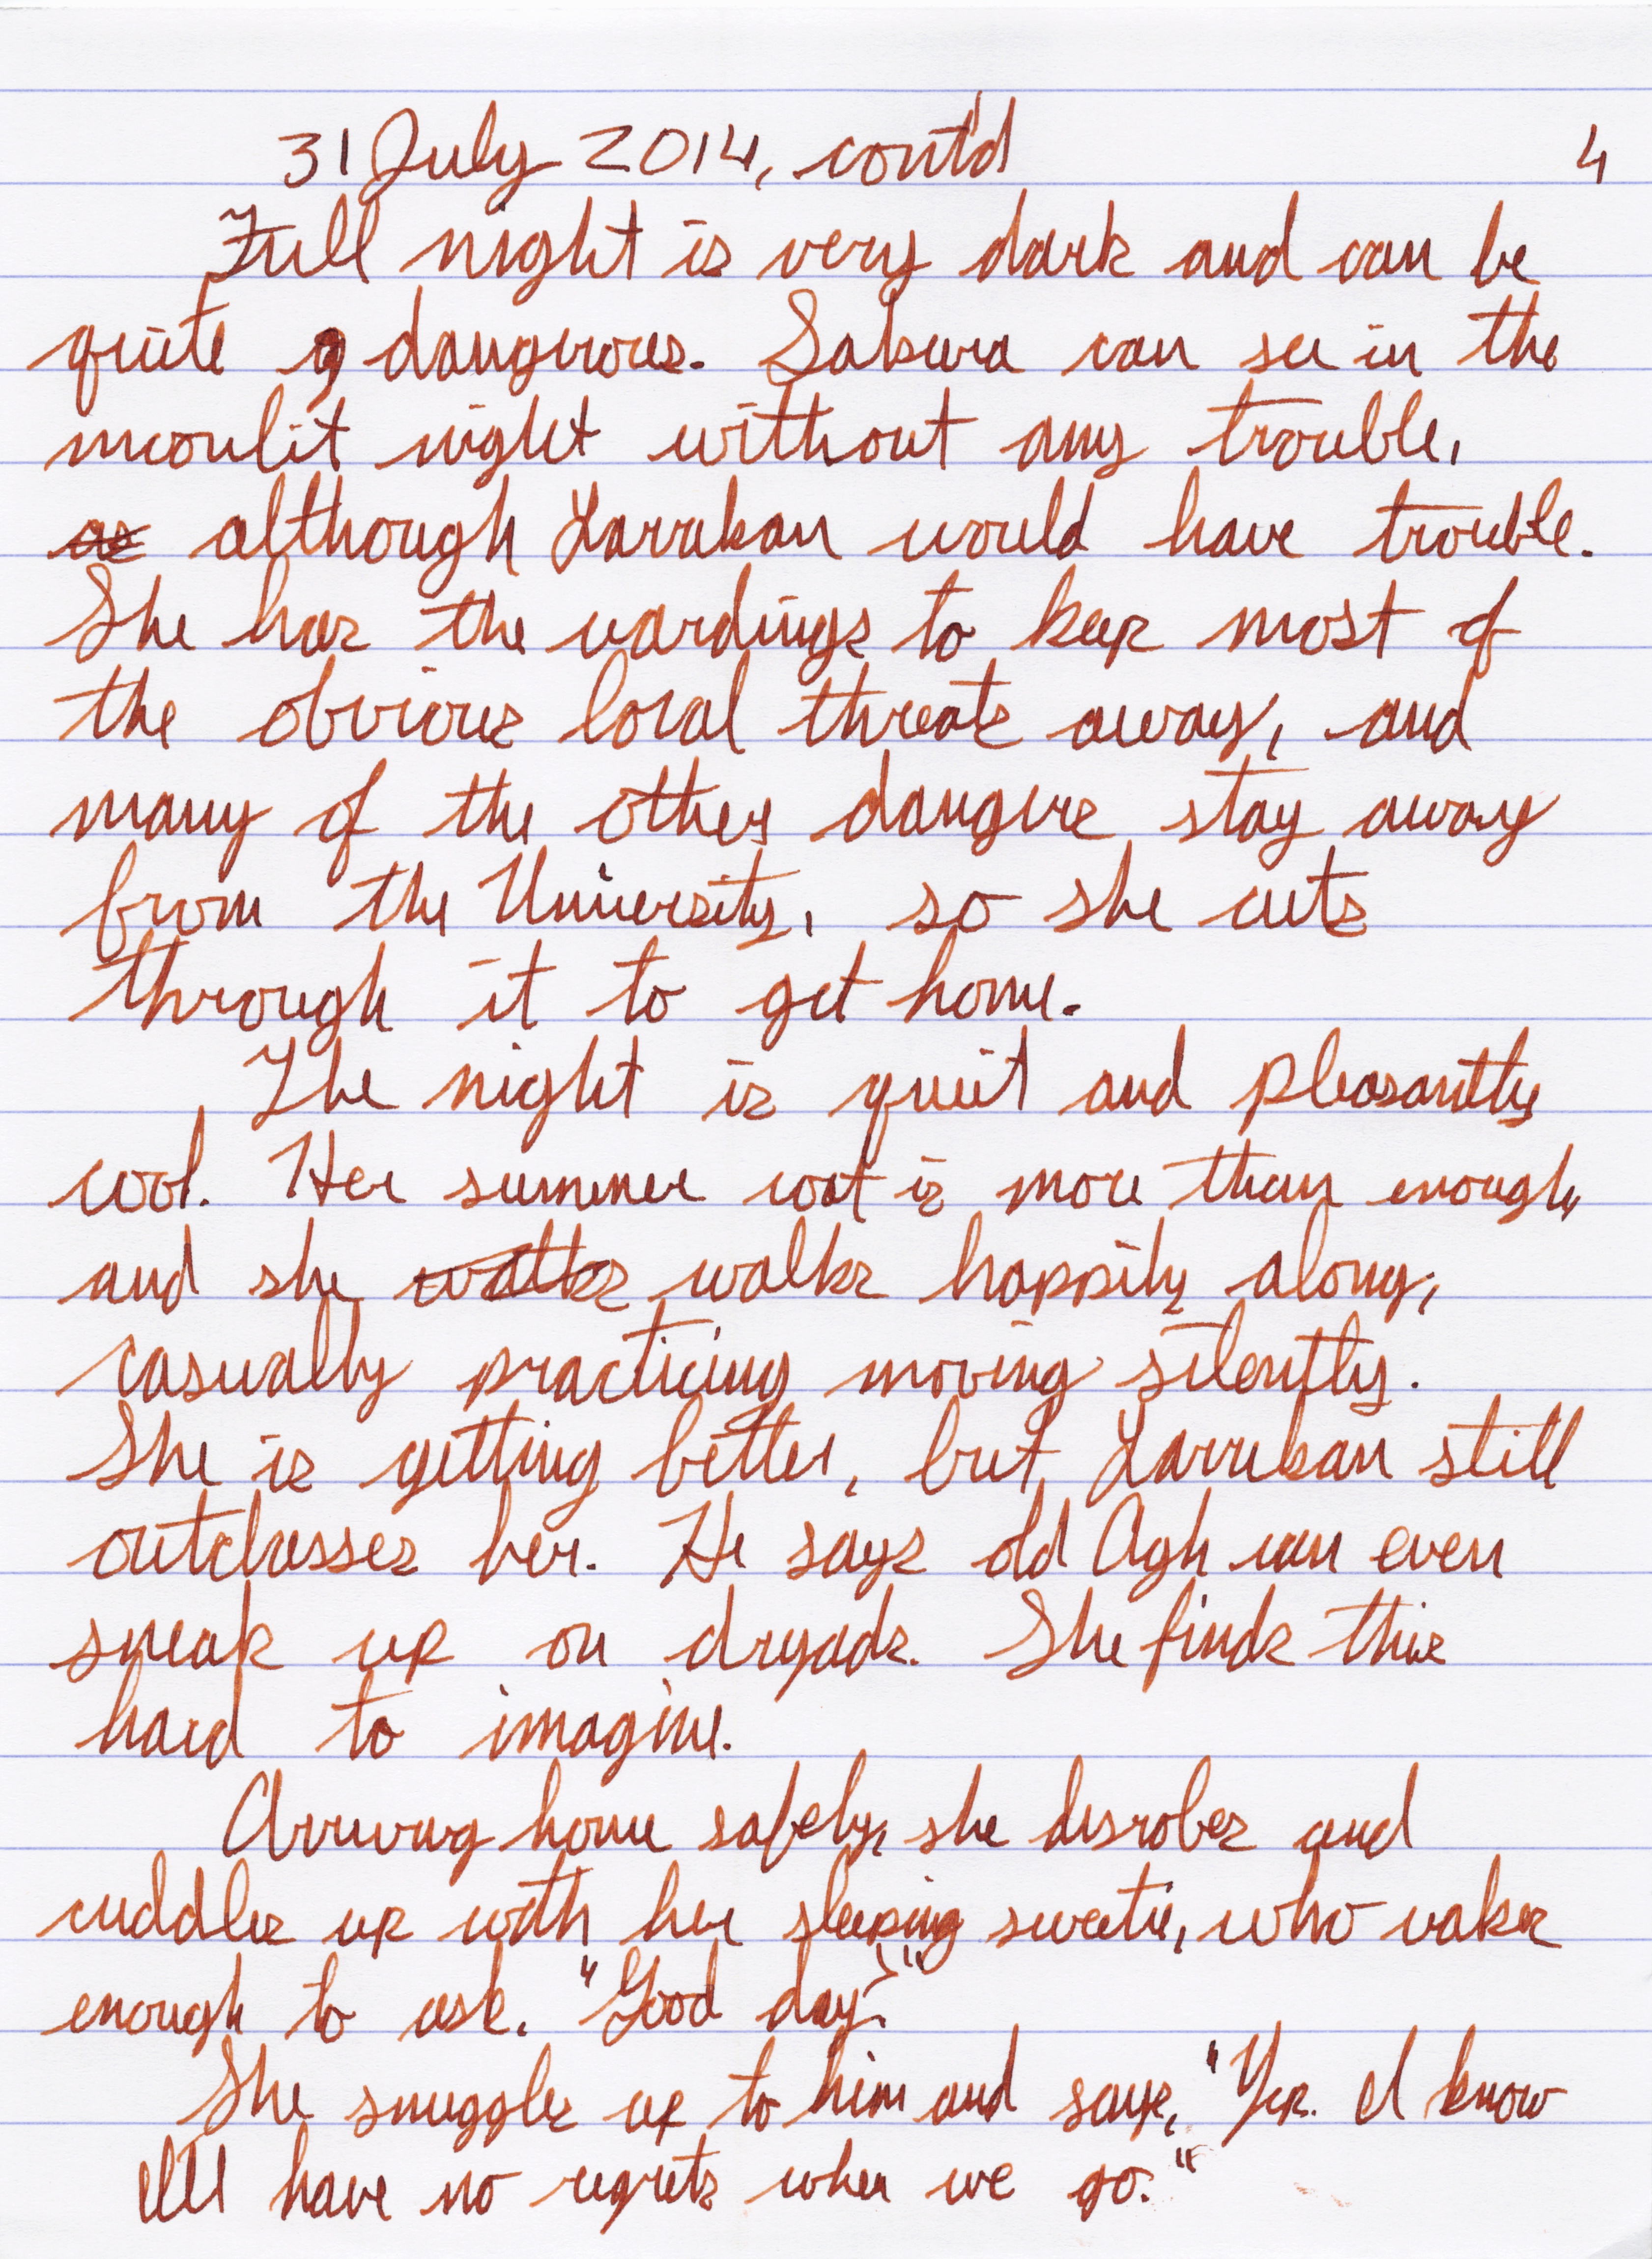 31 July 2014, cont'd 4
Full night is very dark and can be
quite dangerous. Sakura can see in the
moonlit night without any trouble,
as although Larrekan would have trouble.
She has the wardings to keep most of
the obvious local threats away, and
many of the other dangers stay away
from the University, so she cuts
through it to get home.
The night is quiet and pleasantly
cool. Her summer coat is more than enough,
and she walks walks happily along,
casually practicing moving silently.
She is getting better, but Larrekan still
outclasses her. He says old Agh can even
sneak up on dryads. She finds this
hard to imagine.
Arriving home safely, she disrobes and
cuddles up with her sleeping sweetie, who wakes
enough to ask. "Good day?"
She snuggles up to him and says, "Yep. I know
I'll have no regrets when we go."